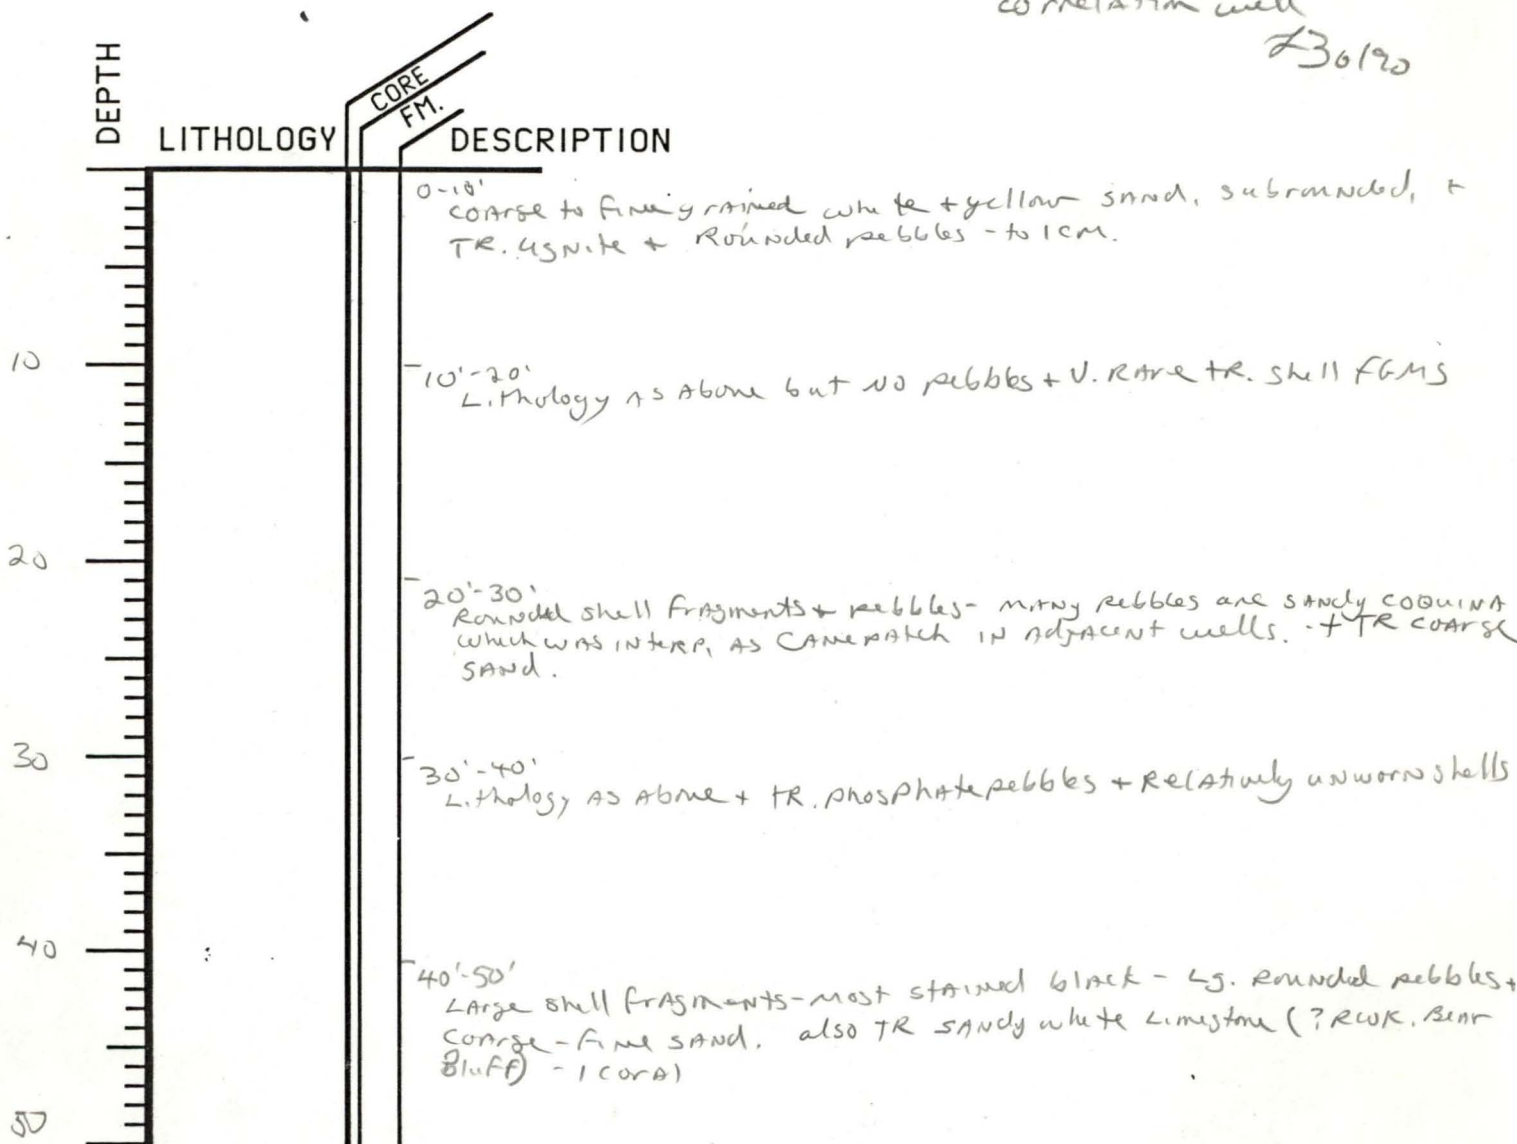 correlation well
DEPTH
LITHOLOGY
CORE
FM.
DESCRIPTION
0-10'
COArse to fine grained white + yellow SAND, subrounded, +
TR. Lignite + Rounded pebbles - to 1CM.
10
10'-20'
Lithology AS Above but NO pebbles + V. RAre tR. shell FGMS
20
20'-30'
Rounded shell frAgments + pebbles - MANY pebbles are SANDy COQUINA
which WAS INTERP. AS CANEPATCH IN AdjACENT wells. + TR COArse
SAND.
30
30'-40'
Lithology AS Above + tR. phosphAte pebbles + RelAtively unworn shells
40
40'-50'
LArge shell frAgments - most stAined blAck - Lg. Rounded pebbles +
COArse - fine SAND. also TR SANDy white Limestone (? RWK. BeAr
Bluff) - 1 corAl
50